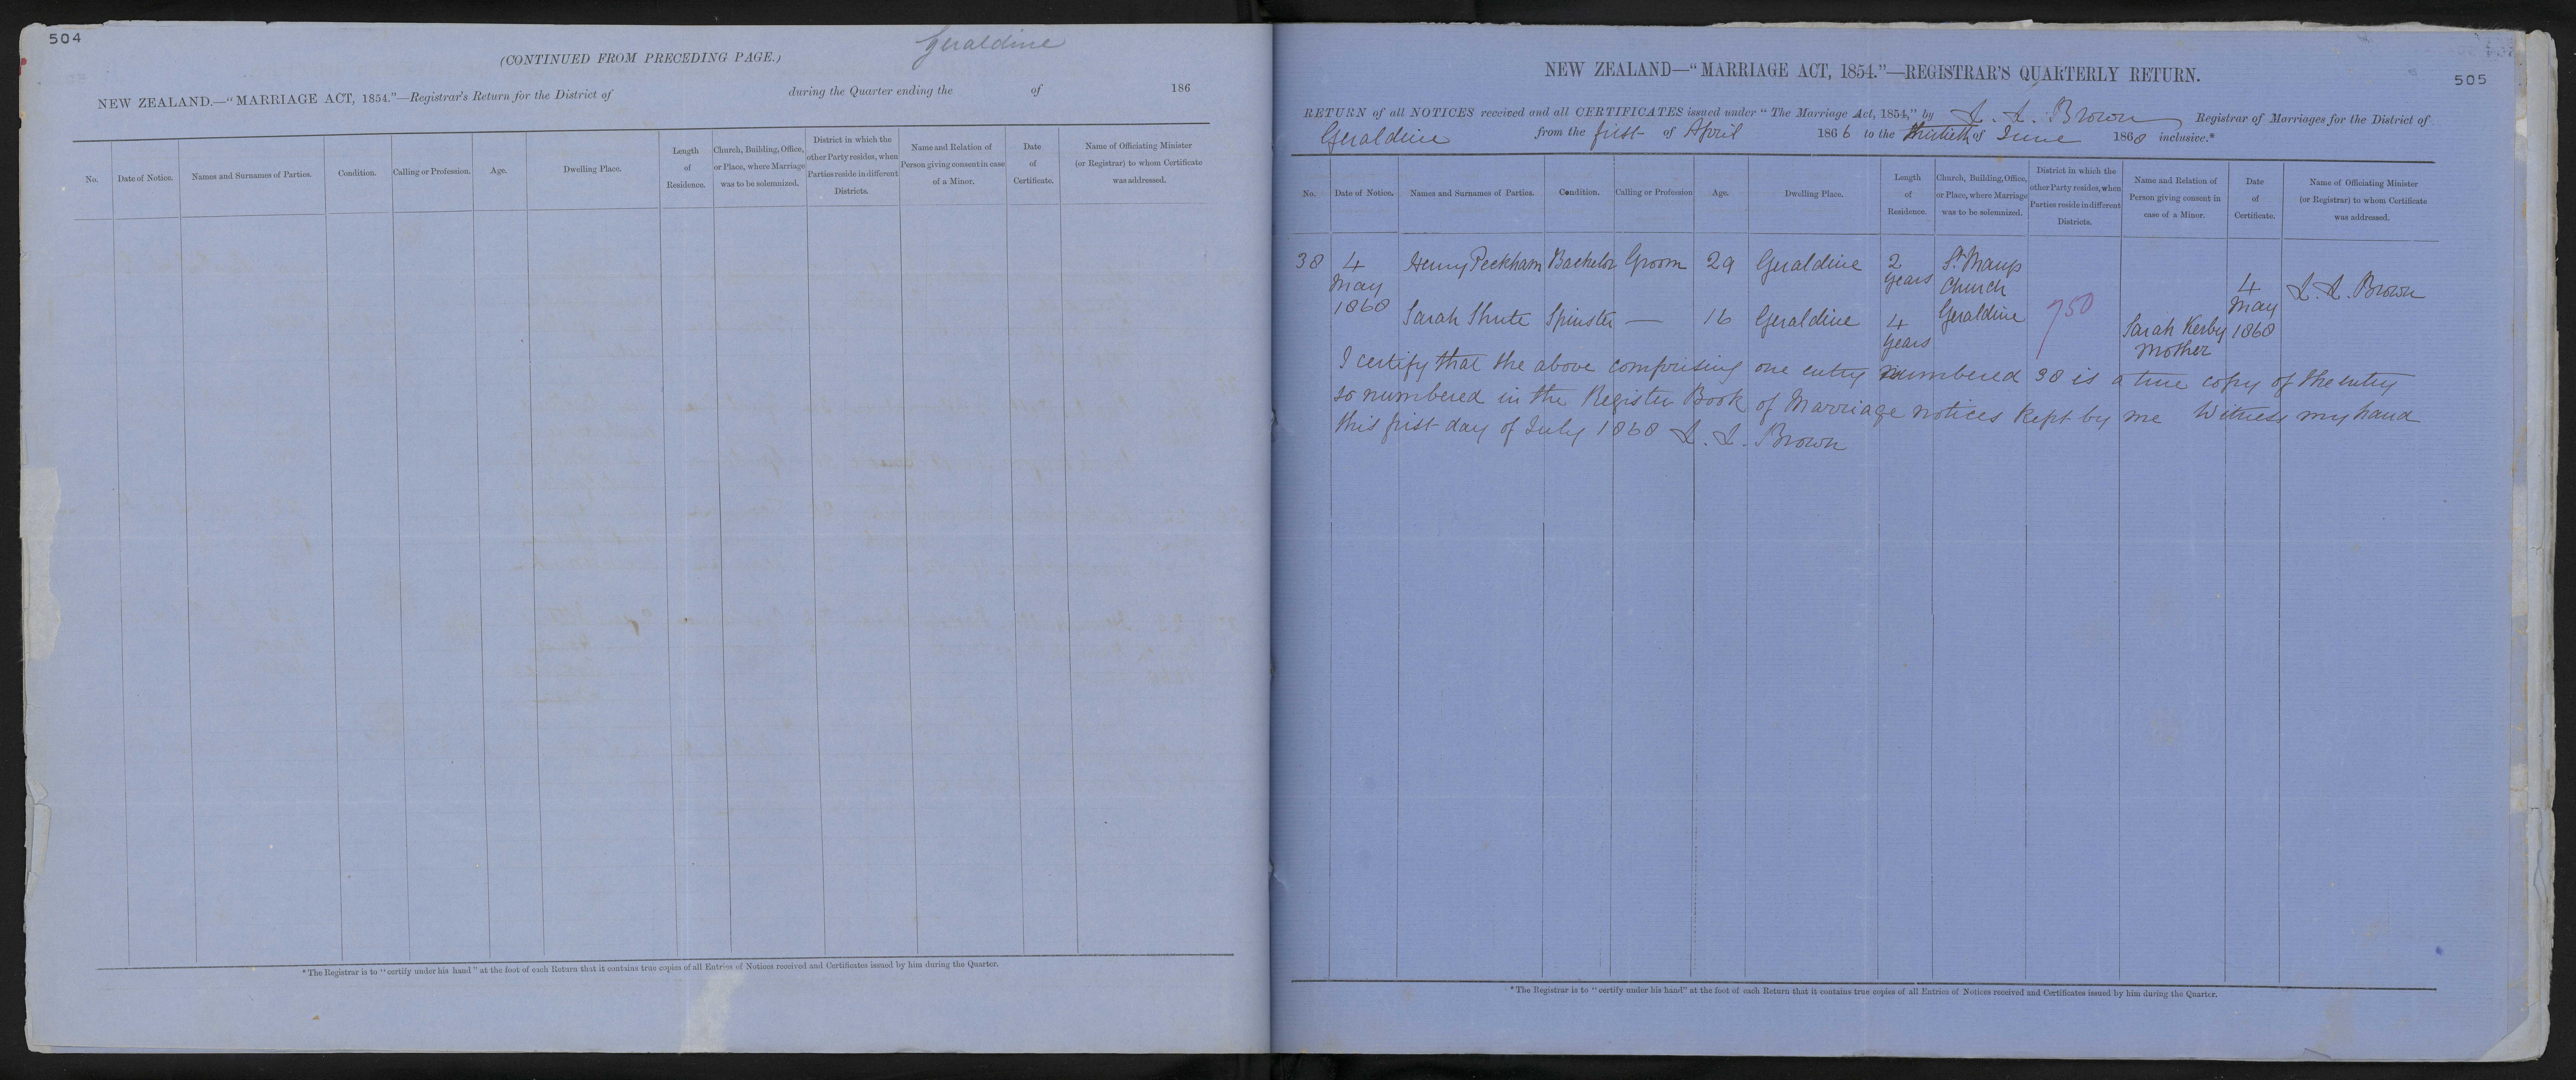 504
Geraldine
(CONTINUED FROM PRECEDING PAGE.)
NEW ZEALAND.—"MARRIAGE ACT, 1854."—Registrar's Return for the District of during the Quarter ending the of 186
No. Date of Notice. Names and Surnames of Parties. Condition. Calling or Profession. Age. Dwelling Place. Length of Residence. Church, Building, Office, or Place, where Marriage was to be solemnized. District in which the other Party resides, when Parties reside in different Districts. Name and Relation of Person giving consent in case of a Minor. Date of Certificate. Name of Officiating Minister (or Registrar) to whom Certificate was addressed.
*The Registrar is to "certify under his hand" at the foot of each Return that it contains true copies of all Entries of Notices received and Certificates issued by him during the Quarter.
505
NEW ZEALAND—"MARRIAGE ACT, 1854."—REGISTRAR'S QUARTERLY RETURN.
RETURN of all NOTICES received and all CERTIFICATES issued under "The Marriage Act, 1854," by Brown Registrar of Marriages for the District of
Geraldine from the first of April 186 to the thirtieth of June 1868 inclusive.*
No. Date of Notice. Names and Surnames of Parties. Condition. Calling or Profession Age. Dwelling Place. Length of Residence. Church, Building, Office, or Place, where Marriage was to be solemnized. District in which the other Party resides, when Parties reside in different Districts. Name and Relation of Person giving consent in case of a Minor. Date of Certificate. Name of Officiating Minister (or Registrar) to whom Certificate was addressed.
38 4 May 1868 Henry Peckham Bachelor Groom 29 Geraldine 2 years St. Marys Church Geraldine 4 May 1868 Brown
Sarah Shute Spinster — 16 Geraldine 4 years 750 Sarah Kerby Mother
I certify that the above comprising one entry numbered 38 is a true copy of the entry
so numbered in the Register Book of Marriage notices kept by me Witness my hand
this first day of July 1868 Brown
*The Registrar is to "certify under his hand" at the foot of each Return that it contains true copies of all Entries of Notices received and Certificates issued by him during the Quarter.